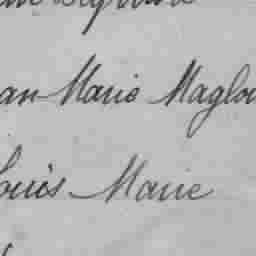 an Marie Maglo
Louis Marie